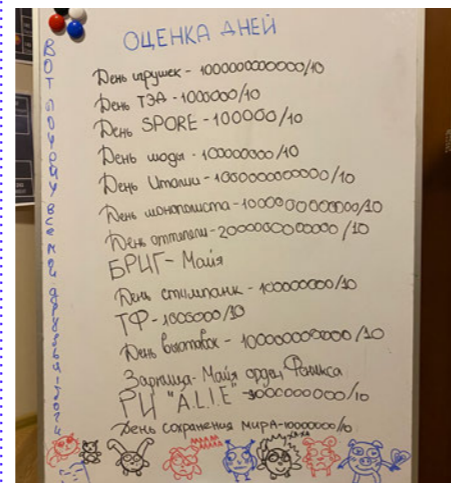 ОЦЕНКА ДНЕЙ
День игрушек - 1000000000000/10
День ТЭА - 1000000/10
День SPORE - 100000/10
День моды - 100000000/10
День Италии - 1000000000000/10
День монополиста - 1000000000000/10
День оттипели - 2000000000000/10
БРИГ - Майя
День стимпанк - 100000000/10
ТФ - 1000000/10
День выставок - 10000000000/10
Зарница - Майя орден Феникса
РИ "A.L.I.E" - 3000000000/10
День сохранения мира - 10000000/10
ВОТ ПОЧЕМУ ВСЕ МОИ